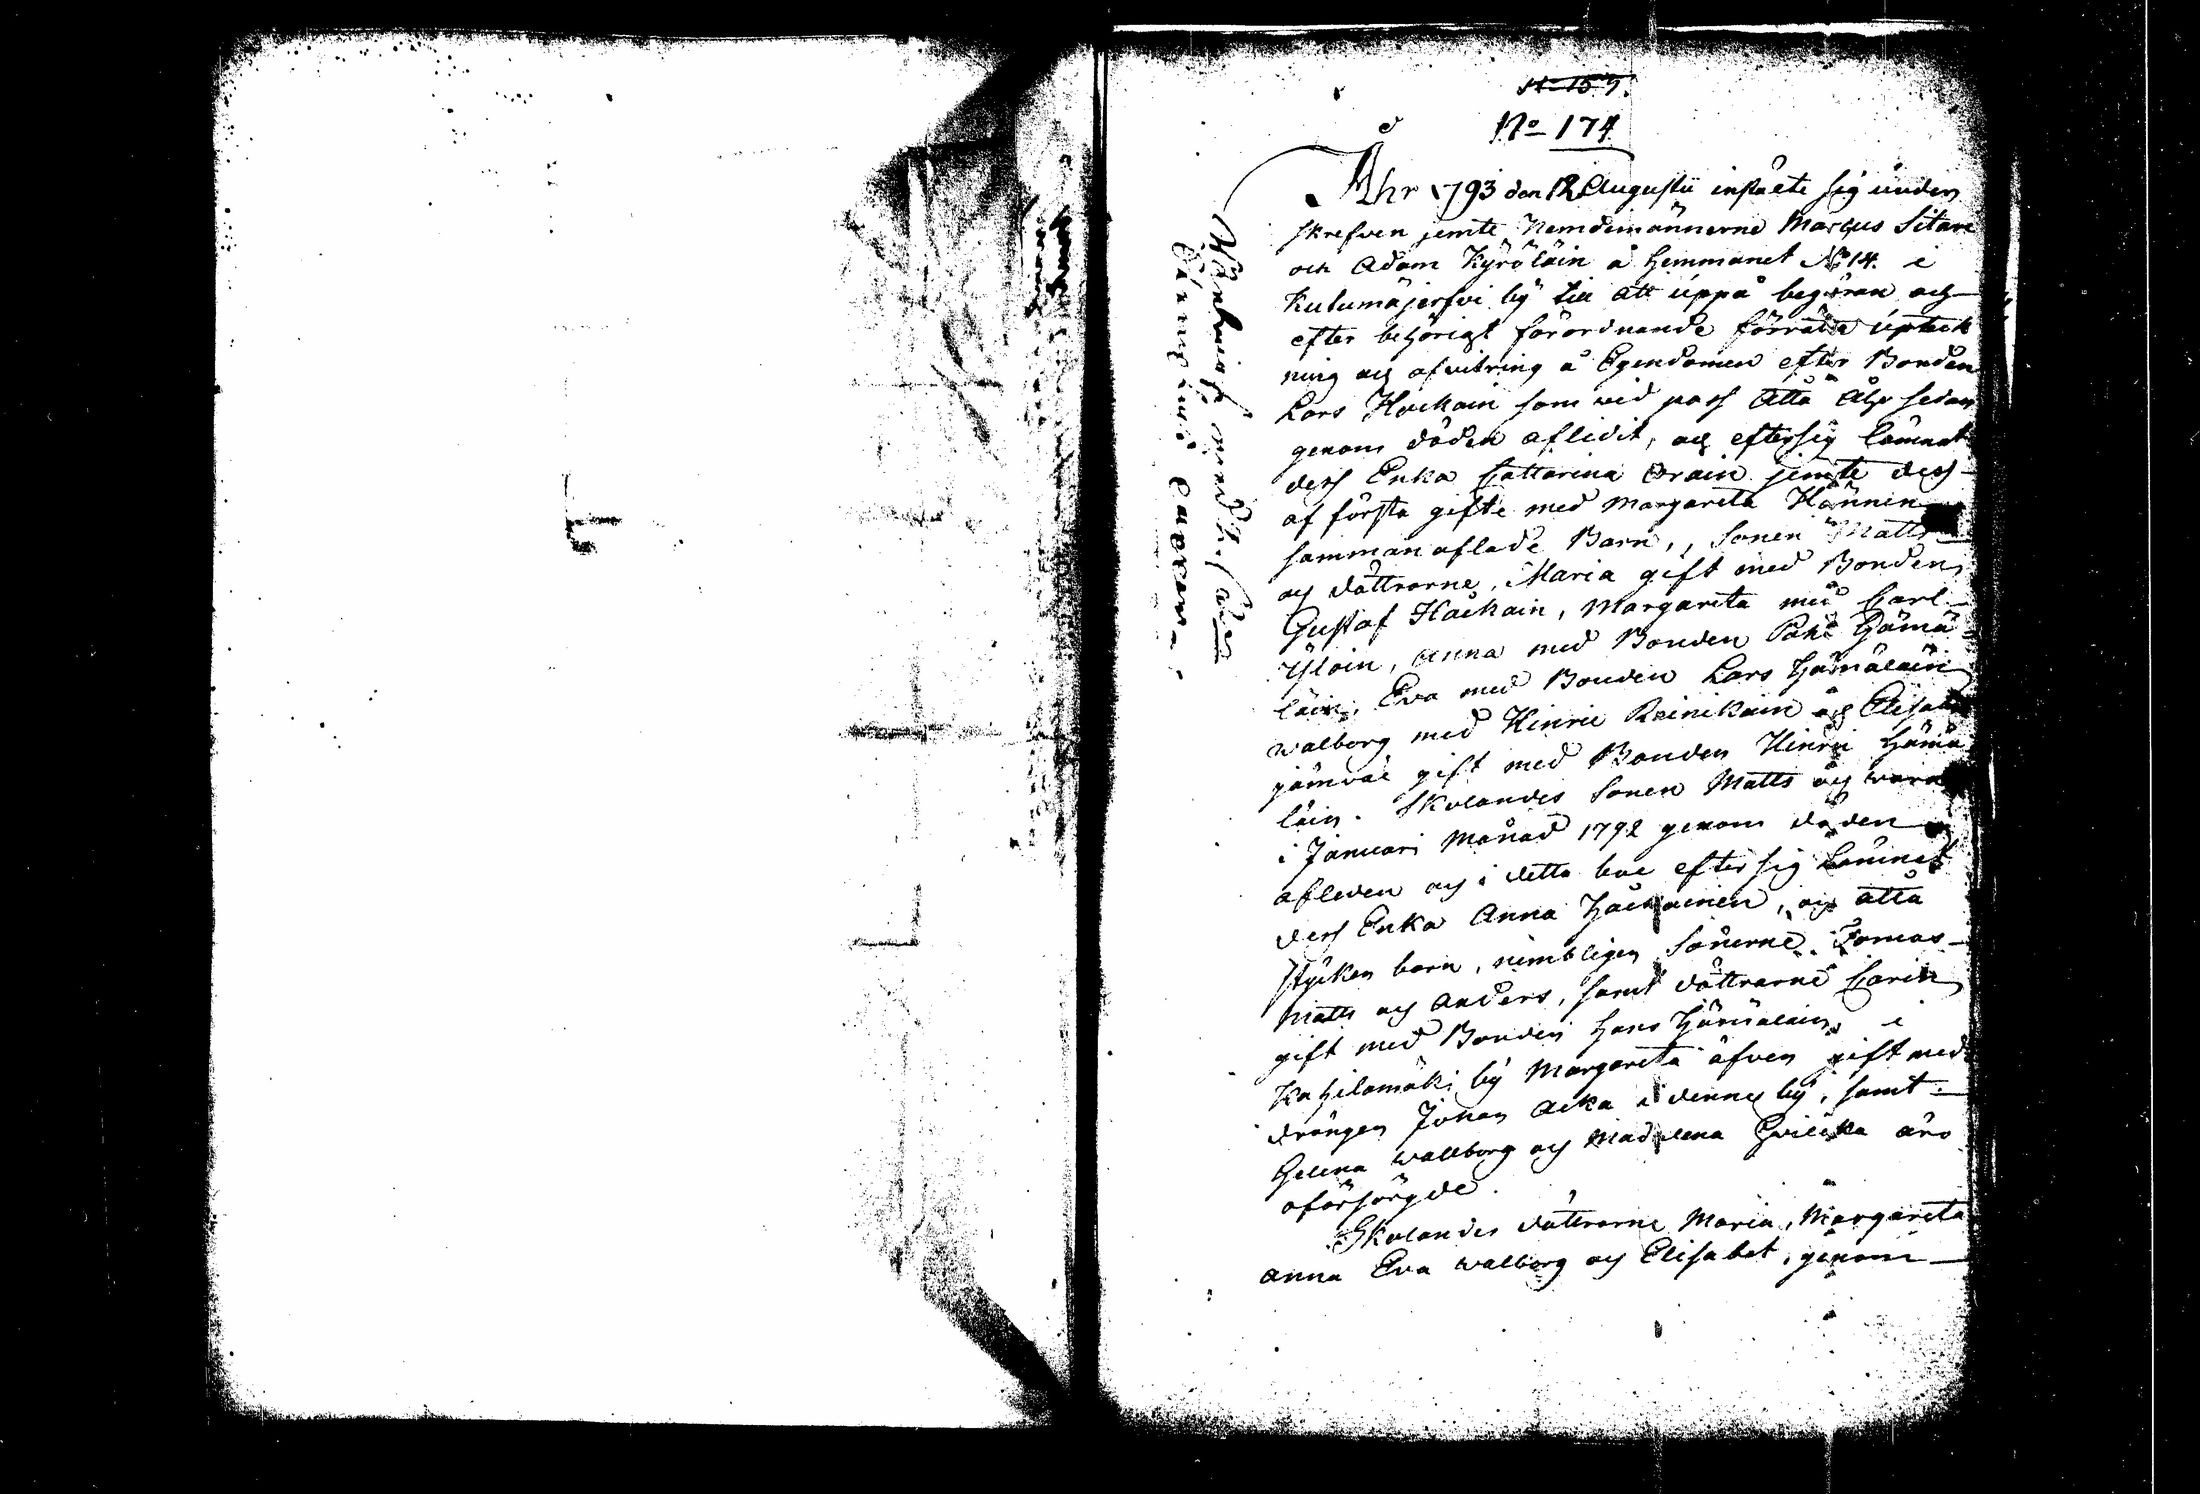 No 157.
No 174
Åhr 1793 den 12 Augustii instälte sig under
skrefven jemte Nemdemännerne Marcus Sitare
och Adam Kyröläin å Hemmanet No 14. i
Kulumäjerfvi by til att uppå begäran och
efter behörigt förordnande förrätta uptek
ning och afvitring å Egendomen efter Bonden
Lars Häckäin som vid pass Åtta Åhr sedan
genom döden aflidit, och eftersig lämnat
dess Enka Cattarina Orain jemte dess
af första gifte med Margareta Hänninen
samman aflade Barn, Sonen Matts
och döttrarne, Maria gift med Bonden
Gustaf Häckäin, Margareta med Carl
Yläin, Anna med Bonden Påhl Hämä-
läin, Eva med Bonden Lars Hämäläin
Walborg med Hinric Reinikain och Elisabet
jämväl gift med Bonden Hinric Hämä
läin. Skolandes Sonen Matts och vara
i Januari Månad 1792 genom döden
afleden och i detta boe efter sig Lämnat
dess Enka Anna Häckäinen, och åtta
stycken barn, nembligen Sönerne Tomas
Matts och Anders, samt döttrarne Carin
gift med Bonden Hans Hämäläin, i
Kahilamäki by Margareta äfven gift med
drängen Johan Acka i denne by, samt
Helena Wallborg och Madlena Hvilcka äro
oförsörgde.
Skolandes döttrarne Maria, Margareta
Anna Eva Walborg och Elisabet, genom